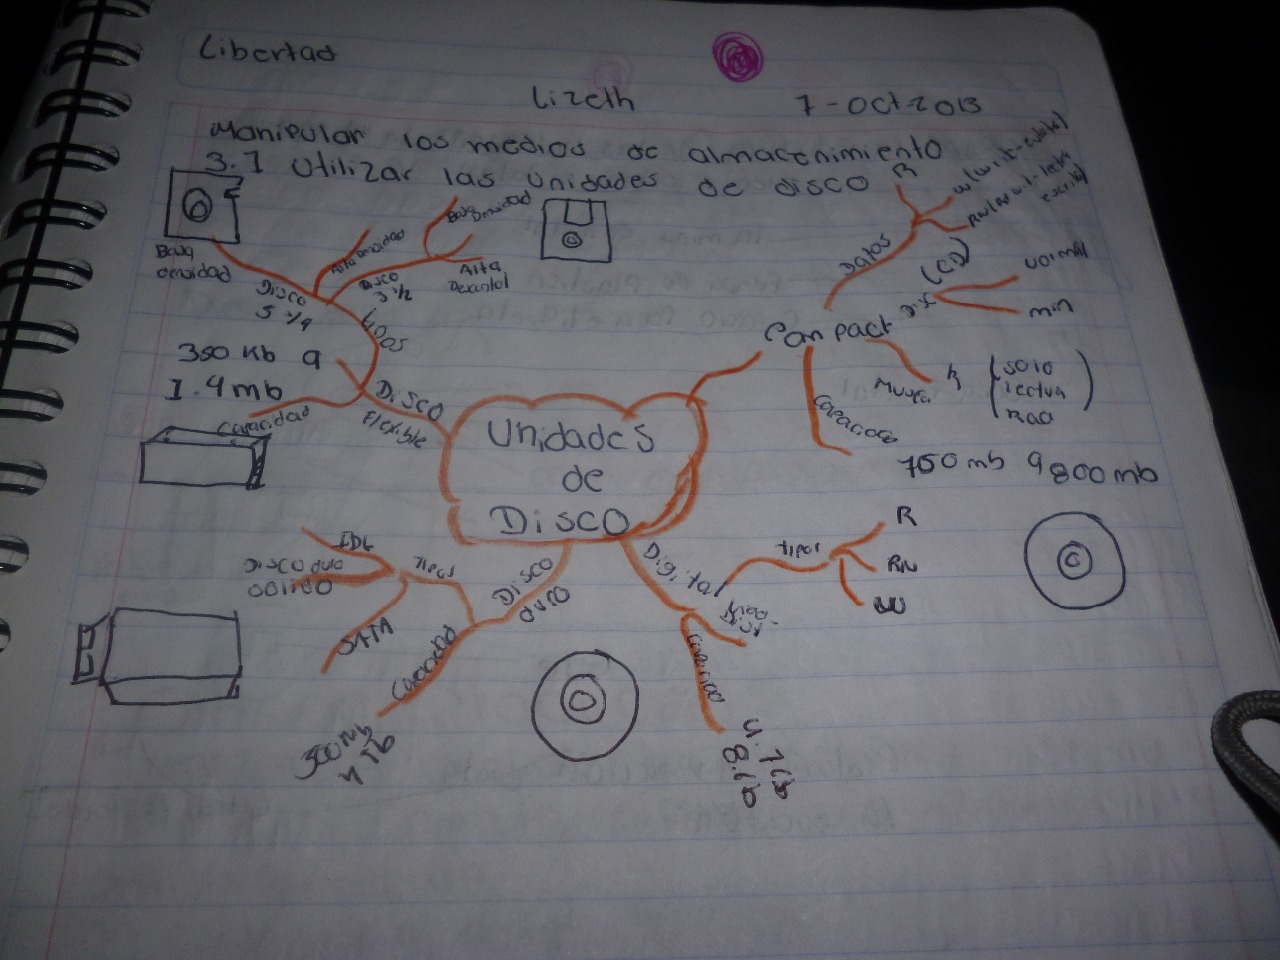 Libertad
Lizeth 7-Oct-2013
Manipular los medios de almacenimiento
3.1 Utilizar las unidades de disco
Baja
densidad
Disco
5 1/4
Alta densidad
Disco
3 1/2
Baja
Densidad
Alta
tipos
350 Kb a
1.4 mb
Capacidad
Disco
Flexible
Unidades
de
Disco
Compact
Disc
(CD)
Datos
R
normal
min
R (solo
lectura
Capacidad
750 mb a 800 mb
Disco
duro
tipos
IDE
Disco duro
solido
SATA
Capacidad
500 Mb
4 Tb
Digital
tipos
R
RW
Capacidad
4.7Gb